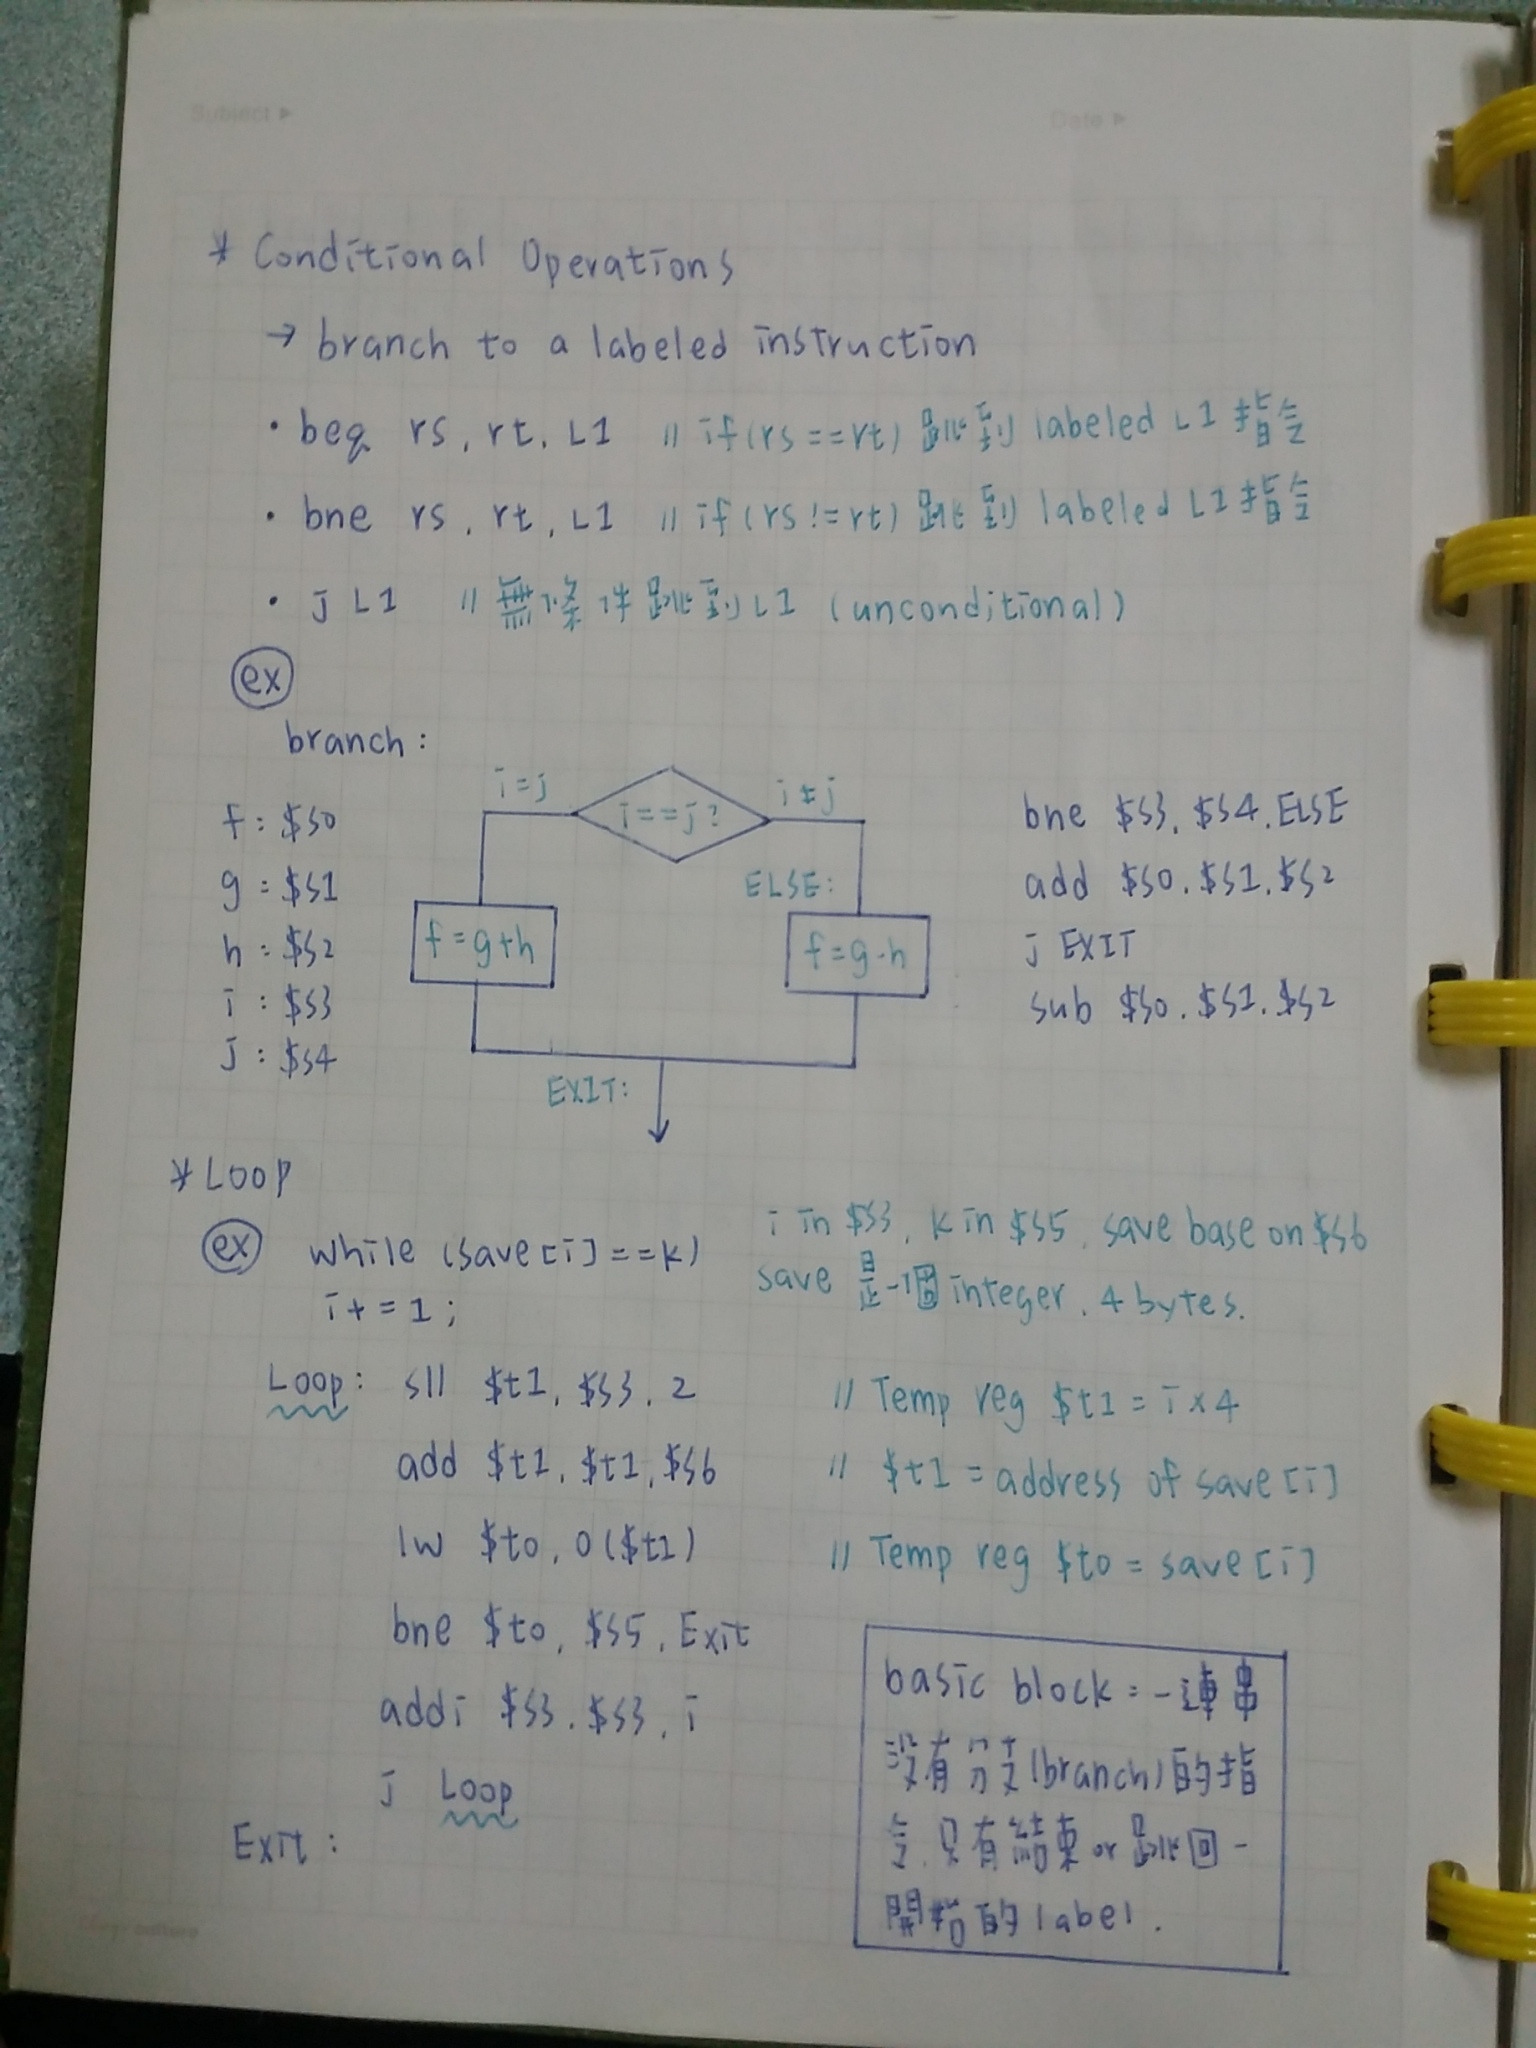 Subject ▸
Date ▸
* Conditional Operations
→ branch to a labeled instruction
• beq rs, rt, L1 // if(rs==rt) 跳到 labeled L1 指令
• bne rs, rt, L1 // if(rs!=rt) 跳到 labeled L1 指令
• j L1 // 無條件跳到 L1 (unconditional)
ex
branch:
f: $s0
g: $s1
h: $s2
i: $s3
j: $s4
i=j
i==j?
i≠j
ELSE:
f=g+h
f=g-h
EXIT:
bne $s3, $s4, ELSE
add $s0, $s1, $s2
j EXIT
sub $s0, $s1, $s2
* Loop
ex while (save[i]==k)
i+=1;
i in $s3, k in $s5, save base on $s6
save 是一個 integer, 4 bytes.
Loop: sll $t1, $s3, 2 // Temp reg $t1 = i×4
add $t1, $t1, $s6 // $t1 = address of save[i]
lw $t0, 0($t1) // Temp reg $t0 = save[i]
bne $t0, $s5, Exit
addi $s3, $s3, i
j Loop
Exit:
basic block = 一連串
沒有分支(branch)的指
令,只有結束 or 跳回一
開始的 label.